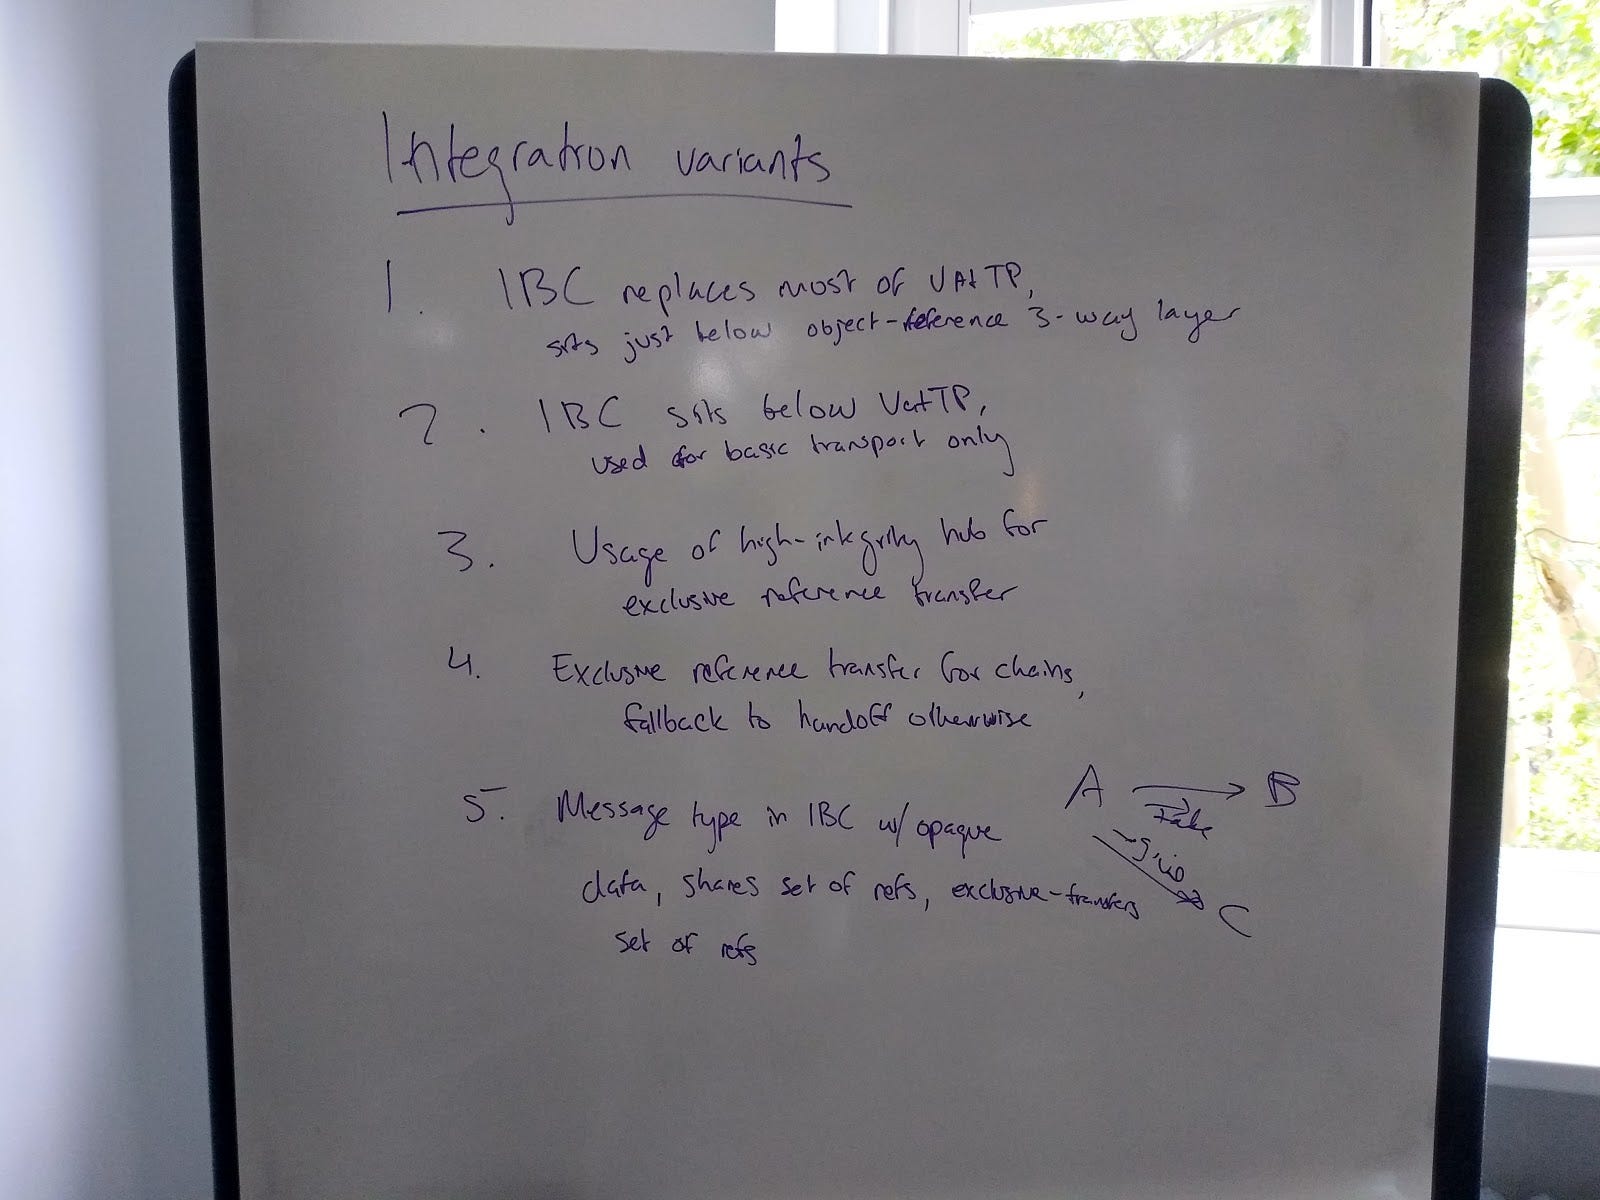 Integration variants
1. IBC replaces most of VAtTP,
sits just below object-reference 3-way layer
2. IBC sits below VatTP,
used for basic transport only
3. Usage of high-integrity hub for
exclusive reference transfer
4. Exclusive reference transfer for chains,
fallback to handoff otherwise
5. Message type in IBC w/ opaque
data, shares set of refs, exclusive-transfers
set of refs
A → B
C